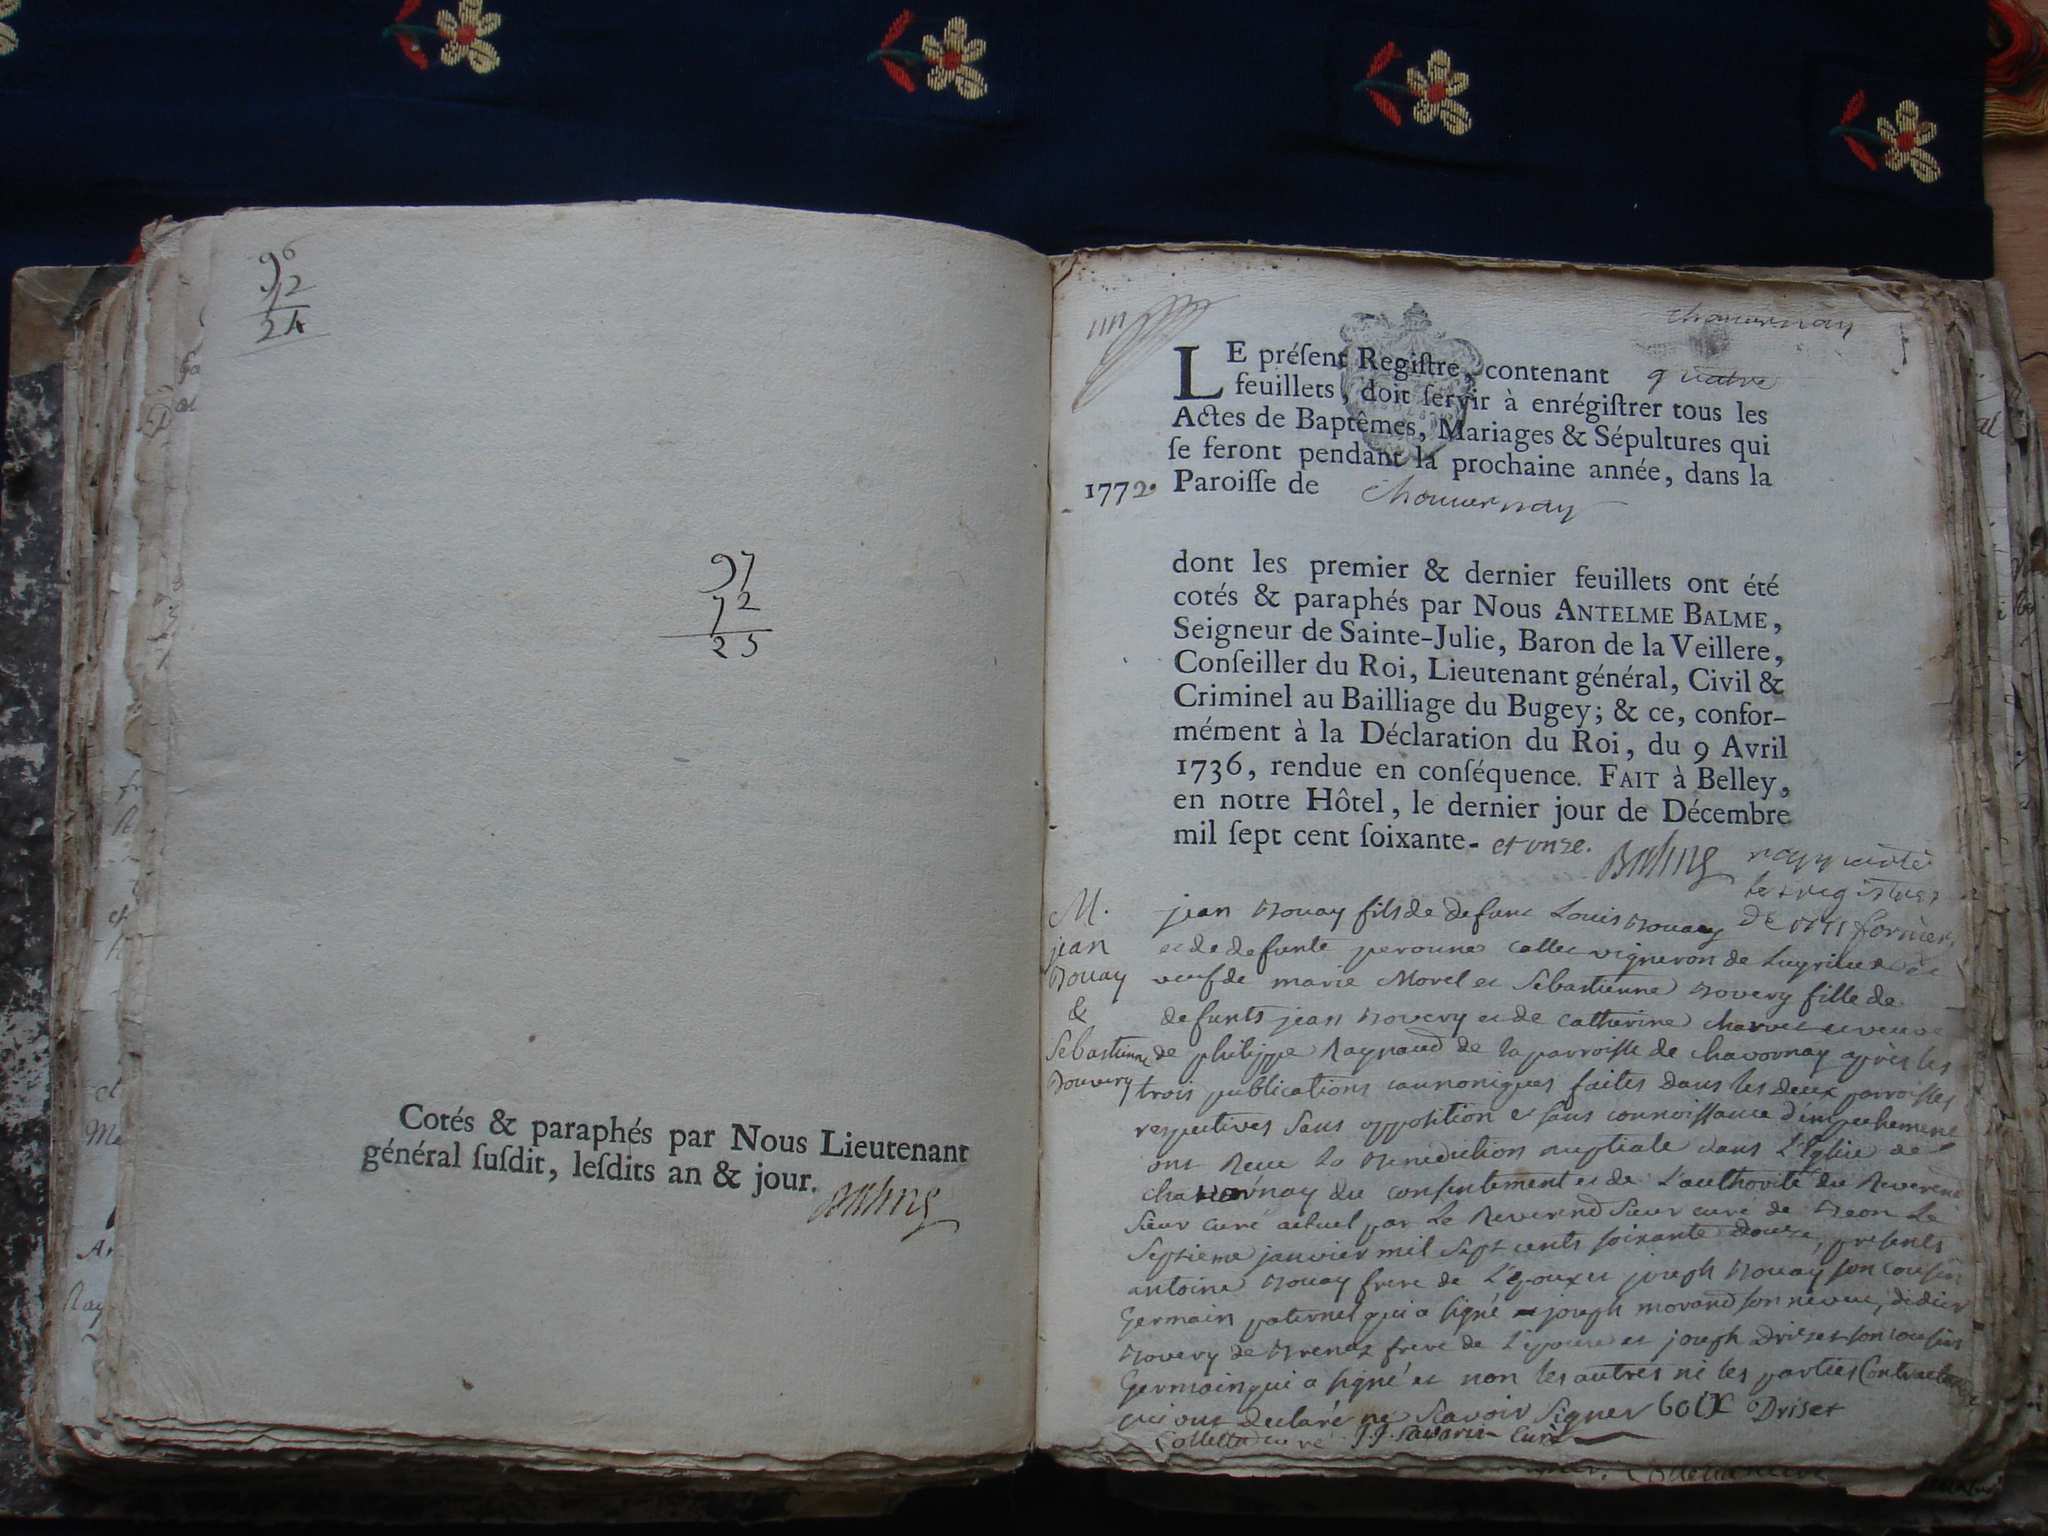 96
72
24
97
72
25
Cotés & paraphés par Nous Lieutenant
général ſuſdit, leſdits an & jour.
LE préſent Regiſtre, contenant quatre
feuillets, doit ſervir à enrégiſtrer tous les
Actes de Baptêmes, Mariages & Sépultures qui
ſe feront pendant la prochaine année, dans la
1772. Paroiſſe de
dont les premier & dernier feuillets ont été
cotés & paraphés par Nous ANTELME BALME,
Seigneur de Sainte-Julie, Baron de la Veillere,
Conſeiller du Roi, Lieutenant général, Civil &
Criminel au Bailliage du Bugey; & ce, confor-
mément à la Déclaration du Roi, du 9 Avril
1736, rendue en conſéquence. FAIT à Belley,
en notre Hôtel, le dernier jour de Décembre
mil ſept cent ſoixante- et onze.
M.
jean
&
Sebastienne
jean fils de defunt Louis
et de defunte vigneron de
veuf de marie Morel et Sebastienne fille de
defunts jean et de catherine charvet et veuve
de philippe Raynaud de la parroisse de chavornay après les
trois publications cannoniques faites dans les deux parroisses
respectives sans opposition et sans connoissance d'empechement
ont Recu la Benediction nuptiale dans L'Eglise de
chavornay du consentement et de L'authorité du Reverend
Sieur curé actuel par Le Reverend Sieur curé de Beon Le
Septieme janvier mil Sept cents soixante douze, presents
antoine frere de L'epoux et joseph son cousin
Germain paternel qui a signé joseph morand son neveu, didier
de frere de L'epouse et joseph Driset son cousin
Germain qui a signé et non les autres ni les parties Contractantes
qui ont declaré ne Scavoir Signer Driset
Collet curé J.J. Savarin Curé